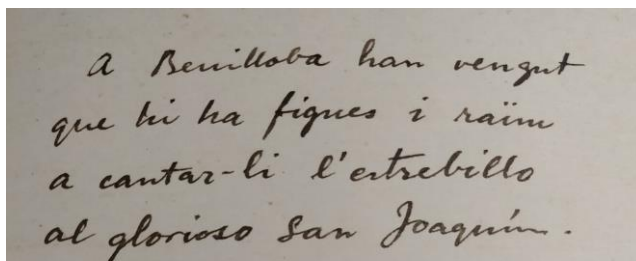 A Benilloba han vengut
que hi ha figues i raïm
a cantar-li l'estrebillo
al glorioso San Joaquín.